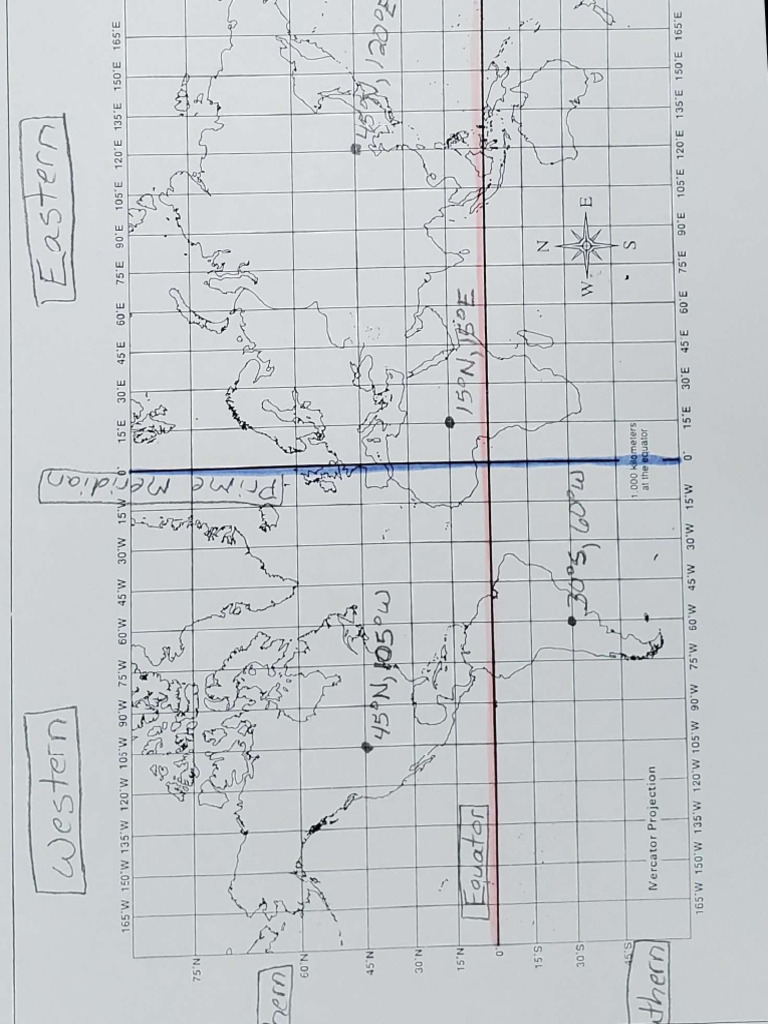 Western
Eastern
165°W 150°W 135°W 120°W 105°W 90°W 75°W 60°W 45°W 30°W 15°W 0° 15°E 30°E 45°E 60°E 75°E 90°E 105°E 120°E 135°E 150°E 165°E
Prime Meridian
75°N
hern
60°N
45°N
45°N, 105°W
45°N, 120°E
30°N
15°N
15°N, 15°E
Equator
0°
15°S
30°S
30°S, 60°W
N
W
E
S
45°S
thern
1,000 kilometers
at the equator
Mercator Projection
165°W 150°W 135°W 120°W 105°W 90°W 75°W 60°W 45°W 30°W 15°W 0° 15°E 30°E 45°E 60°E 75°E 90°E 105°E 120°E 135°E 150°E 165°E